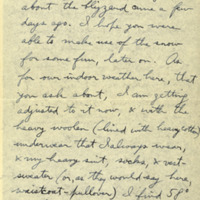 about the blizzard came a few
days ago. I hope you were
able to make use of the snow
for some fun, later on. As
for our indoor weather here, that
you ask about, I am getting
adjusted to it now, & with the
heavy woolen (lined with heavy cotton)
underwear that I always wear,
& my heavy suit, socks, & vest-
sweater (or, as they would say here,
waistcoat-pullover) I find 58°